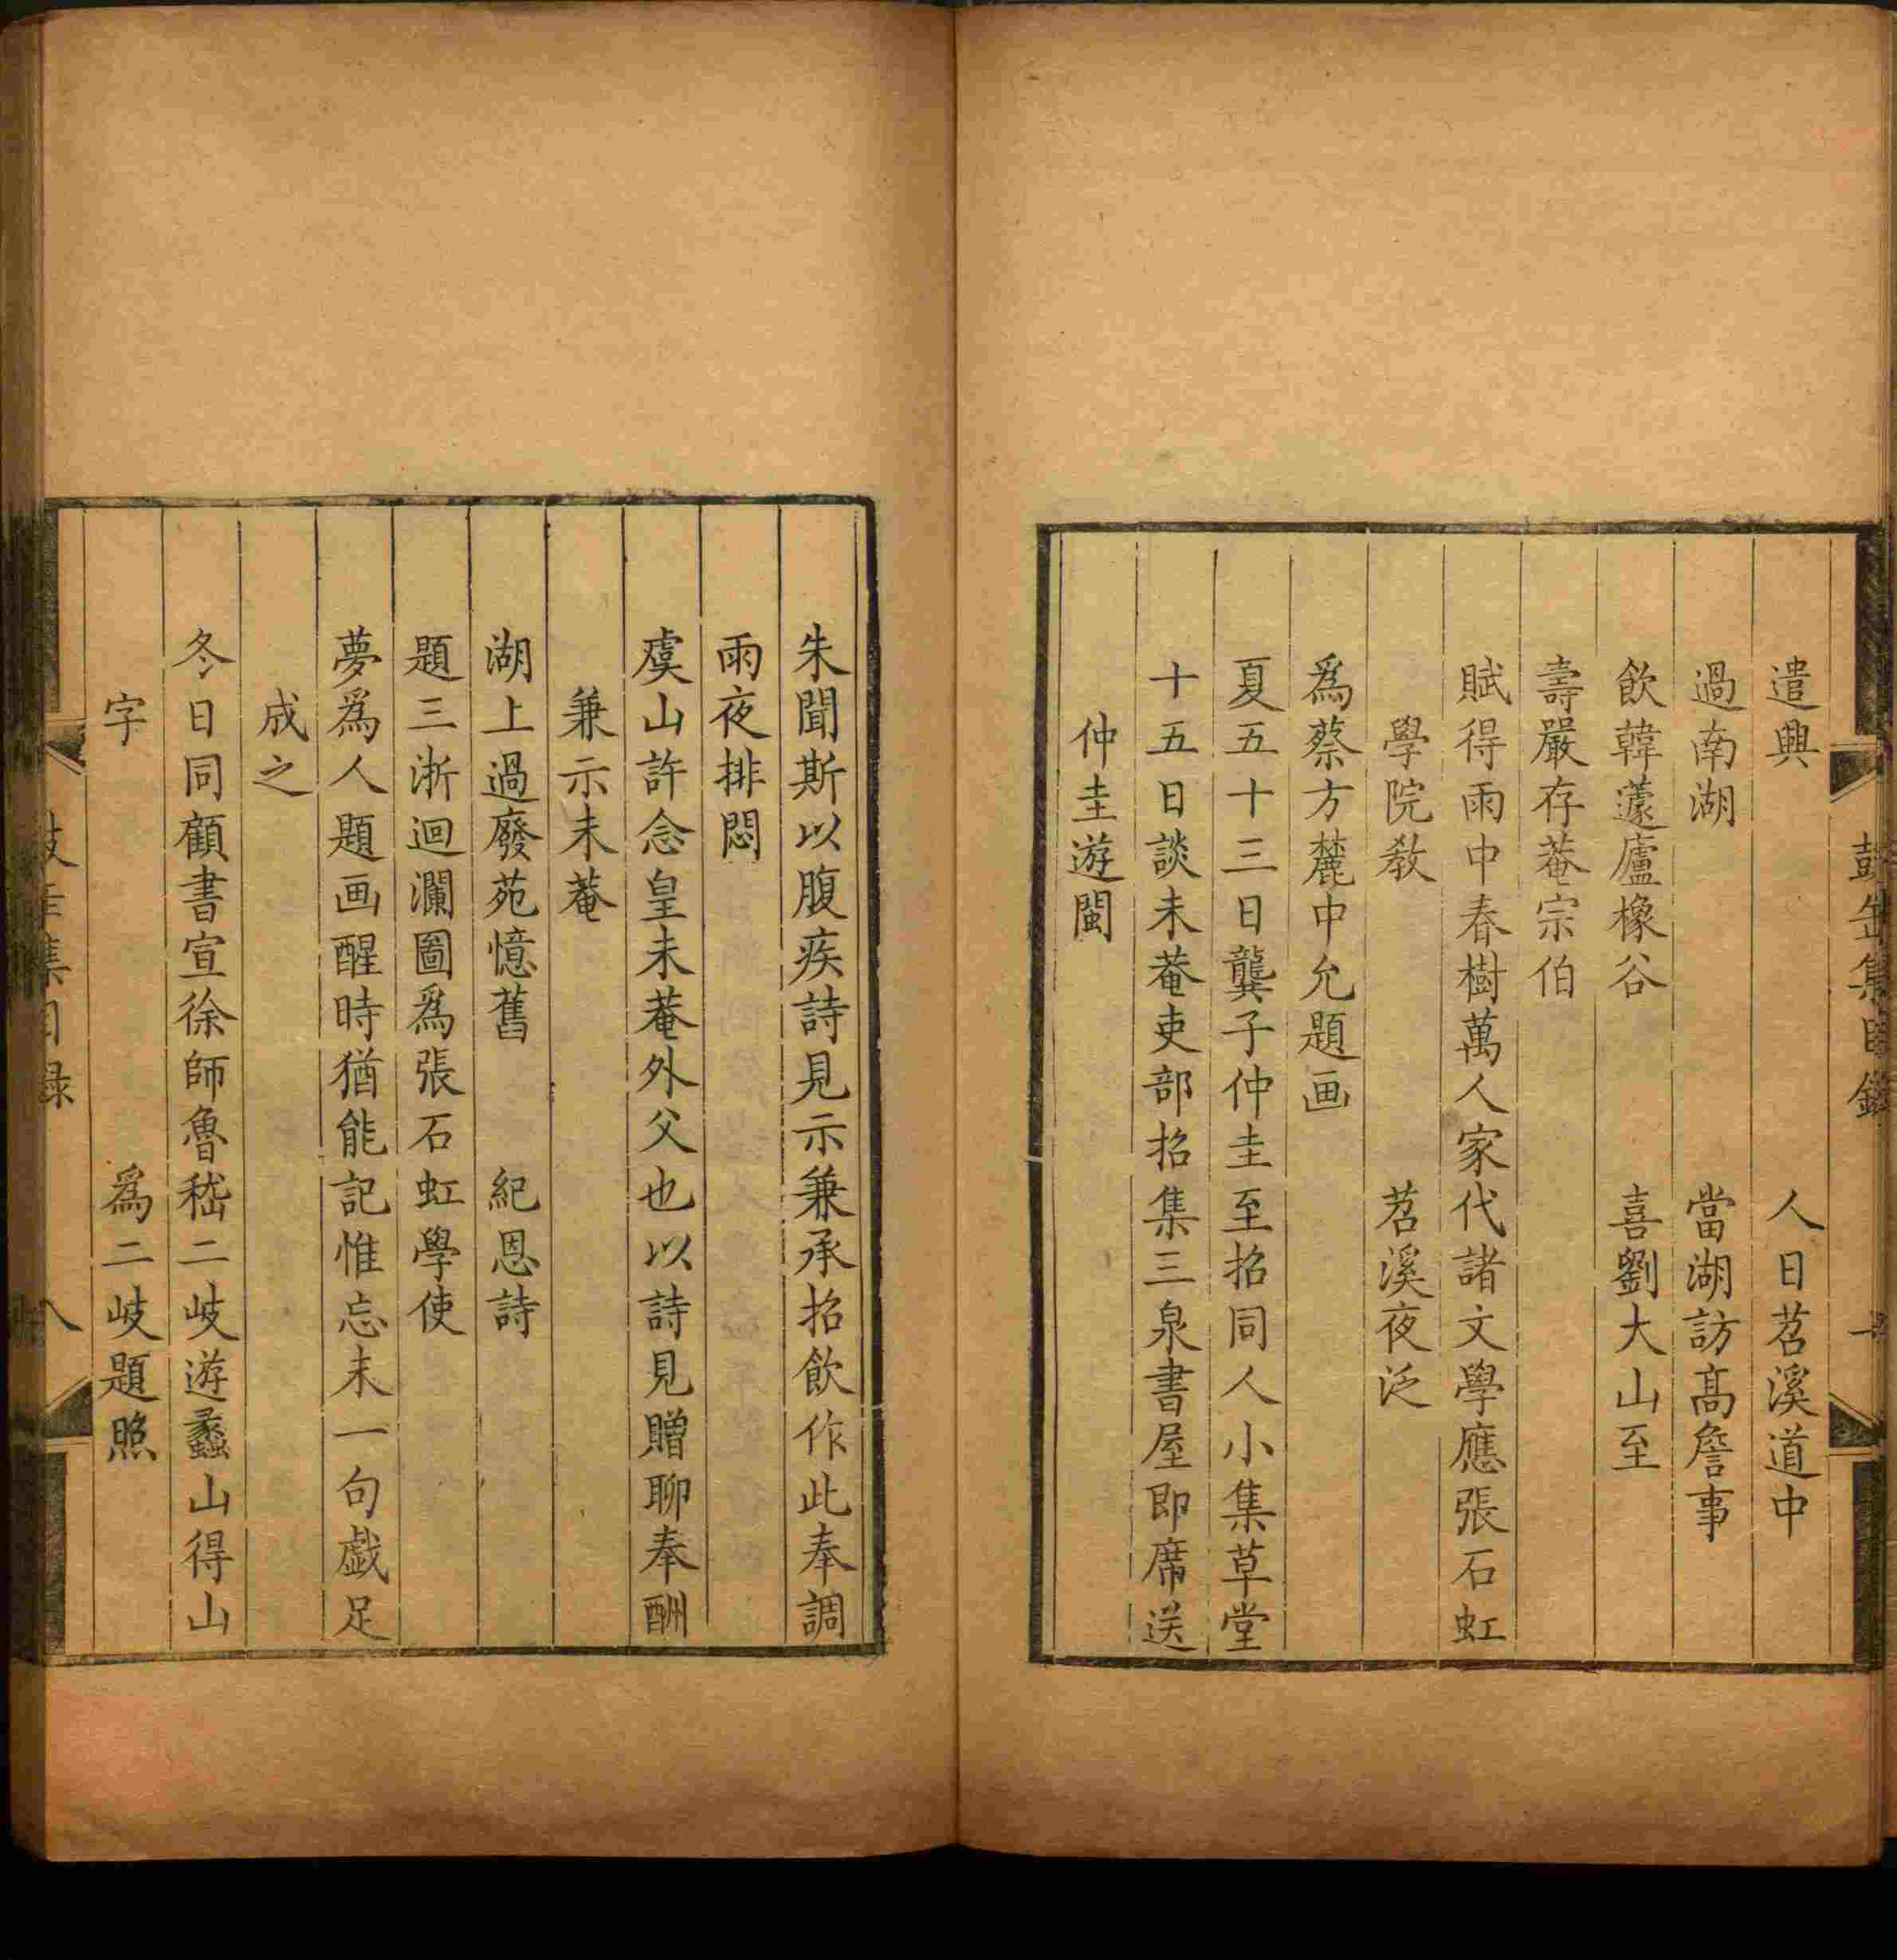 遣興　人日苕溪道中
過南湖　當湖訪髙詹事
飲韓蘧廬橡谷　喜劉大山至
壽嚴存菴宗伯
賦得雨中春樹萬人家代諸文學應張石虹
學院敎　苕溪夜泛
爲蔡方麓中允題画
夏五十三日龔子仲圭至招同人小集草堂
十五日談未菴吏部招集三泉書屋即席送
仲圭遊閩
朱聞斯以腹疾詩見示兼承招飲作此奉調
雨夜排悶
虞山許念皇未菴外父也以詩見贈聊奉酬
兼示未菴
湖上過廢苑憶舊　紀恩詩
題三浙迴瀾圖爲張石虹學使
夢爲人題画醒時猶能記惟忘末一句戯足
成之
冬日同顧書宣徐師魯嵇二岐遊蠡山得山
字　爲二岐題照
集目録
八